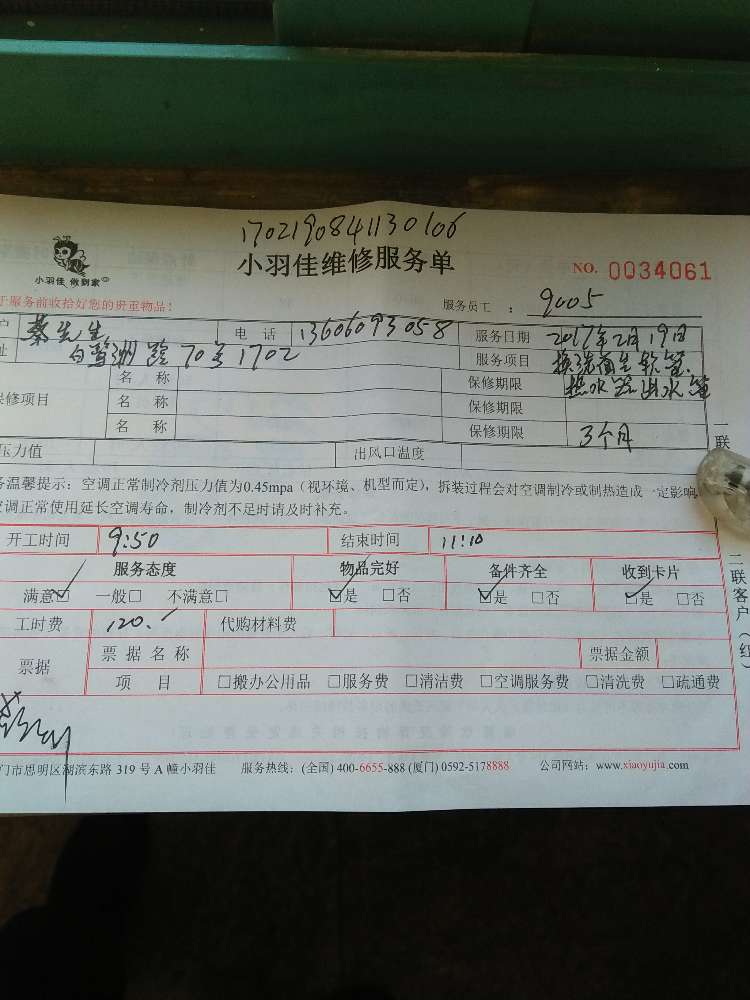 1702190841130106
小羽佳 做到家
小羽佳维修服务单
NO. 0034061
于服务前收拾好您的班重物品!
服务员工 : 9005
户 蔡先生 电 话 13606093058 服务日期 2017年2月19日
址 白鹭洲路70号1702 服务项目 换洗面盆软管、
名 称 保修期限 热水器出水管
保修项目 名 称 保修期限
名 称 保修期限 3个月
压力值 出风口温度
务温馨提示：空调正常制冷剂压力值为0.45mpa（视环境、机型而定），拆装过程会对空调制冷或制热造成一定影响
空调正常使用延长空调寿命，制冷剂不足时请及时补充。
开工时间 9:50 结束时间 11:10
服务态度 物品完好 备件齐全 收到卡片
满意☑ 一般□ 不满意□ ☑是 □否 ☑是 □否 ☑是 □否
工时费 120.- 代购材料费
票据 票 据 名 称 票据金额
项 目 □搬办公用品 □服务费 □清洁费 □空调服务费 □清洗费 □疏通费
门市思明区湖滨东路 319 号 A 幢小羽佳 服务热线：(全国) 400-6655-888 (厦门) 0592-5178888 公司网站：www.xiaoyujia.com
一联
二联客户（红）